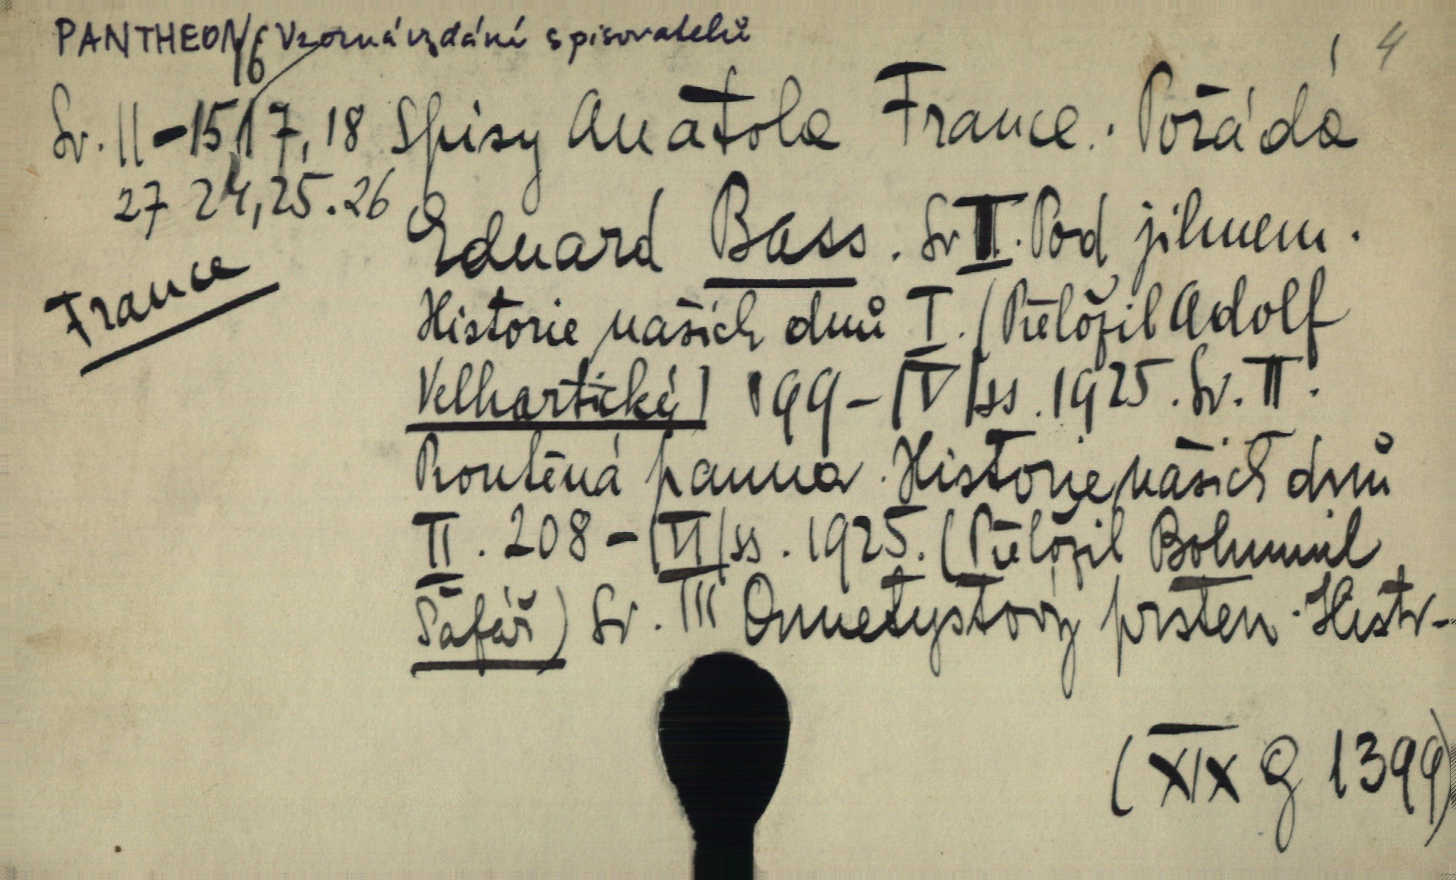 PANTHEON Vzorná vydání spisovatelů
4
16
Sv. 11-15, 17, 18 Spisy Anatola France. Pořádá
27 24, 25. 26 Eduard Bass. Sv I. Pod jilmem.
France
Historie našich dnů I. (Přeložil Adolf
Velhartický) 199-IV/ss. 1925. Sv. II.
Proutěná panna. Historie našich dnů
II. 208-VI/ss. 1925. (Přeložil Bohumil
Šafář) Sv. III Ometystový prsten. Histo-
(XIX G 1399)